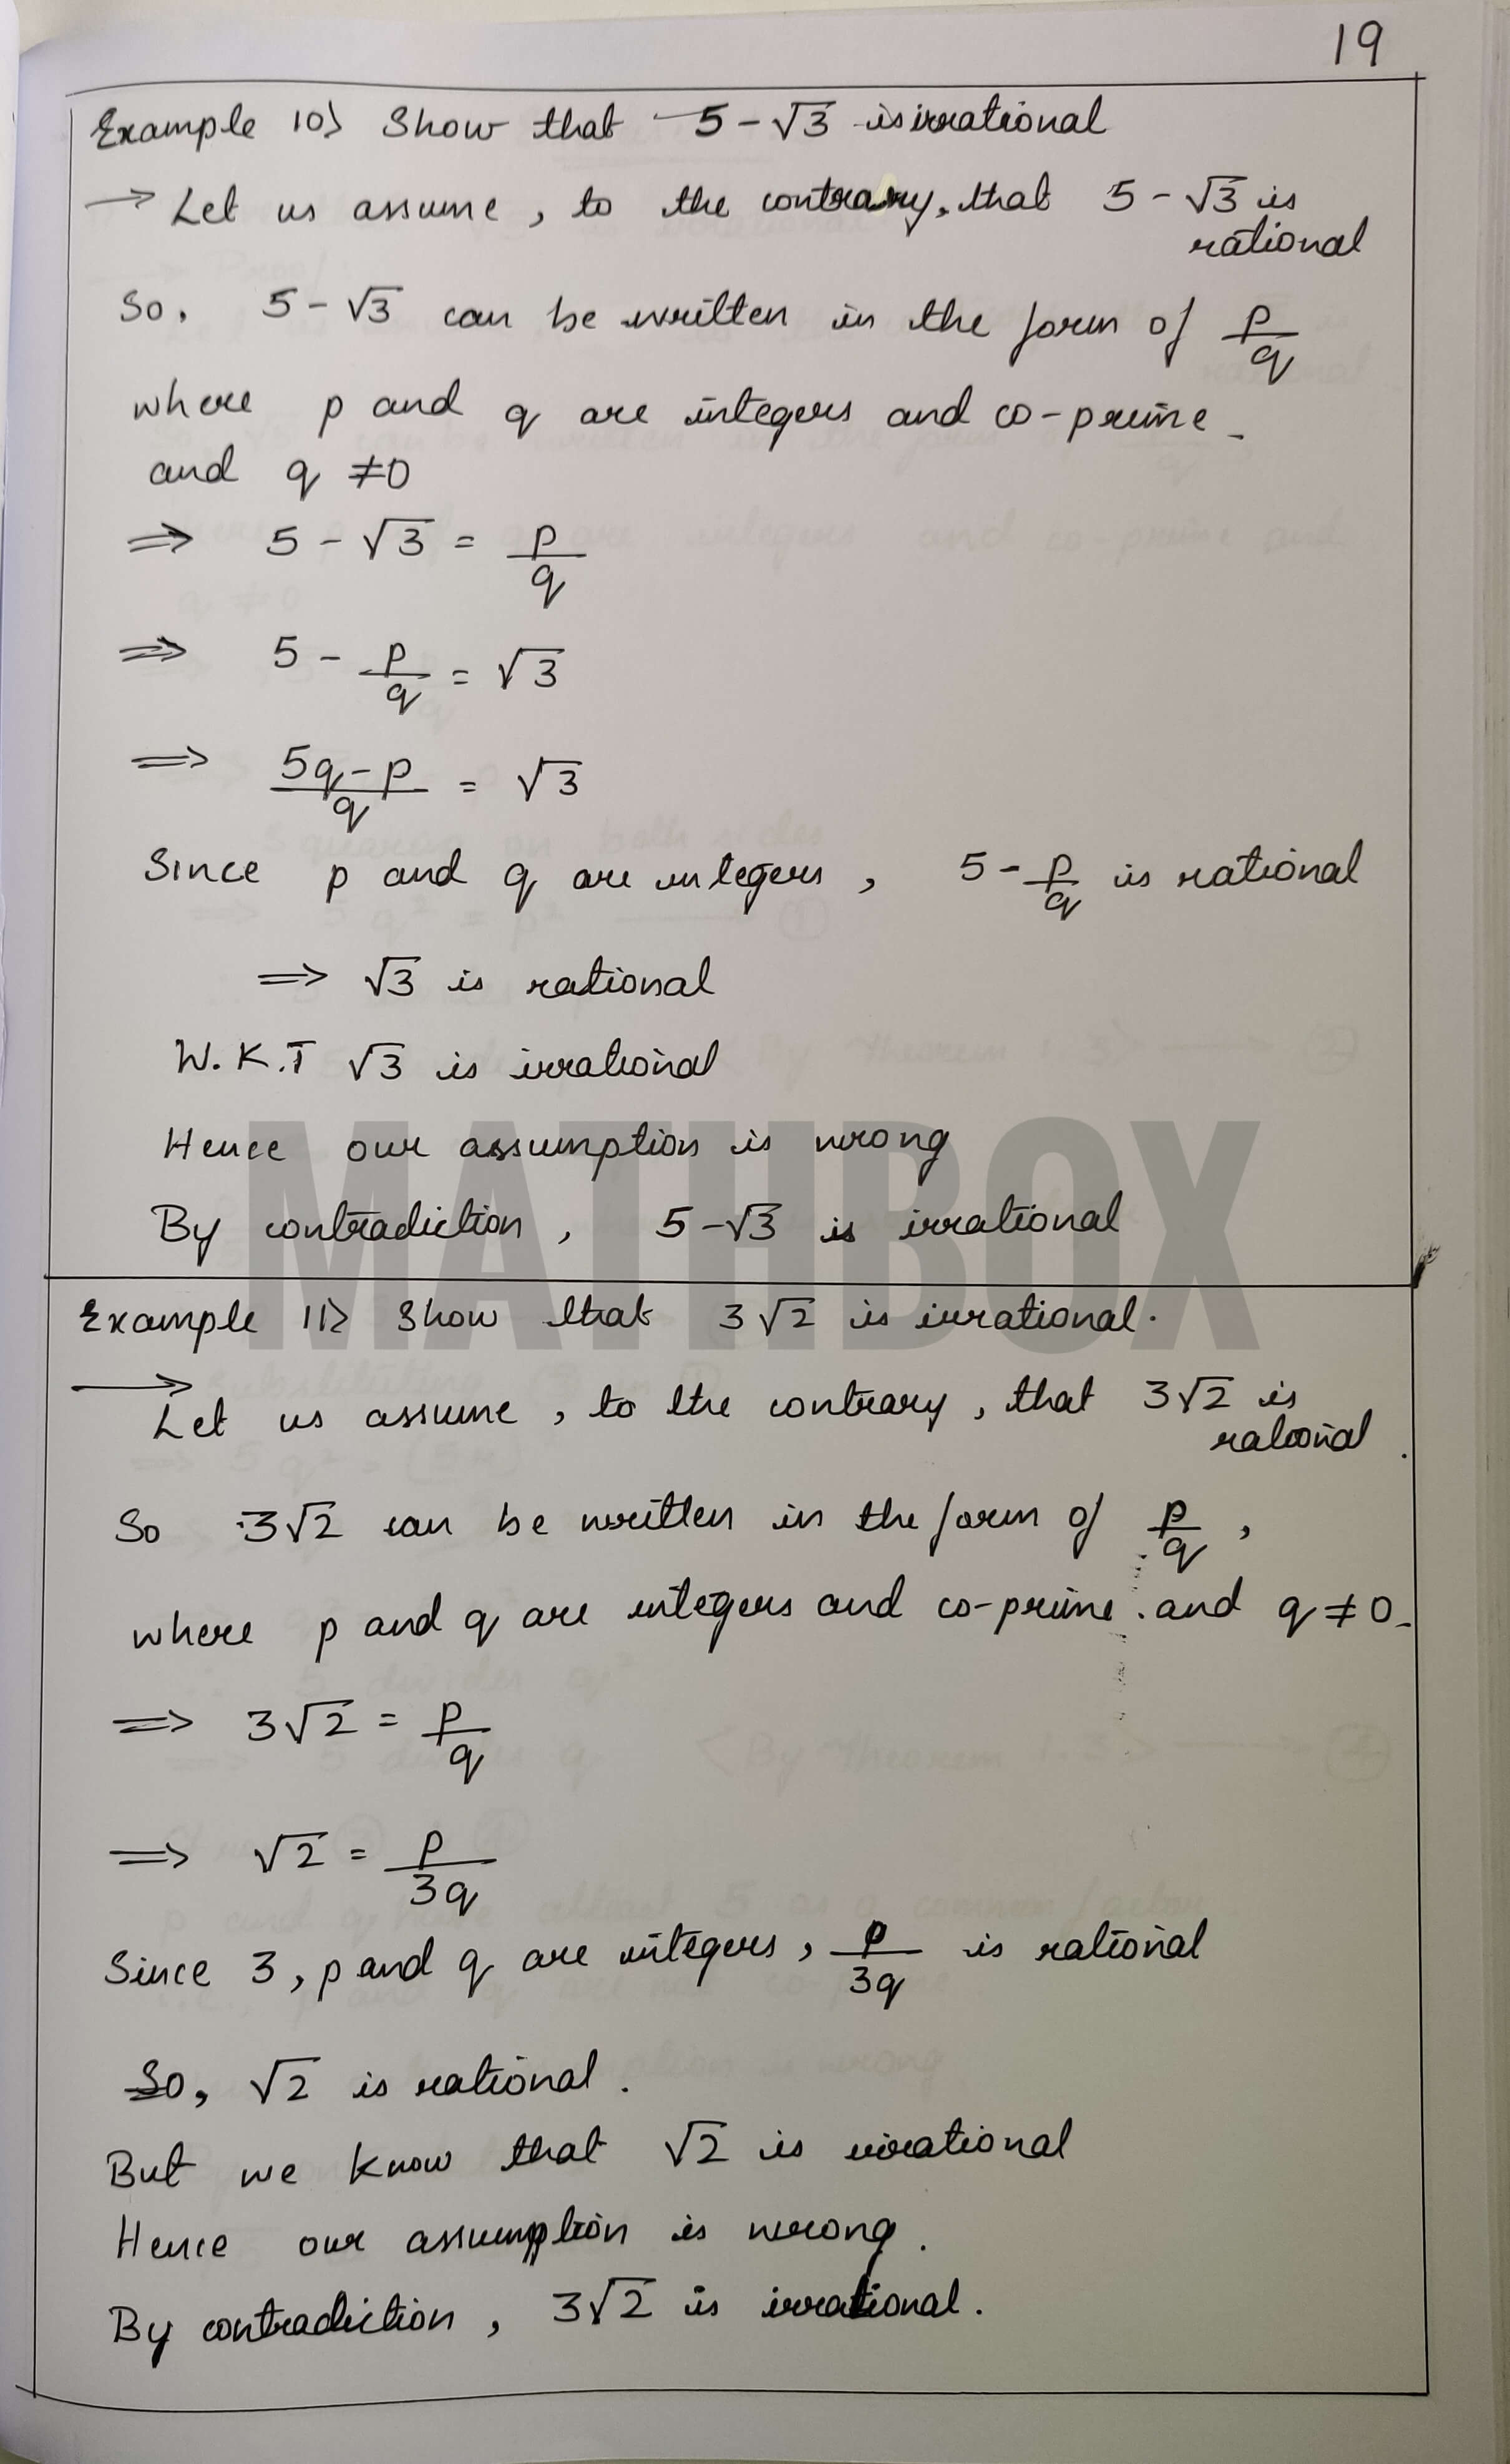 19
Example 10> Show that 5 - √3 is irrational
→ Let us assume, to the contrary, that 5 - √3 is
rational
So, 5 - √3 can be written in the form of p/q
where p and q are integers and co-prime
and q ≠ 0
⇒ 5 - √3 = p/q
⇒ 5 - p/q = √3
⇒ (5q - p)/q = √3
Since p and q are integers, 5 - p/q is rational
⇒ √3 is rational
W.K.T √3 is irrational
Hence our assumption is wrong
By contradiction, 5 - √3 is irrational
MATHBOX
Example 11> Show that 3√2 is irrational.
→ Let us assume, to the contrary, that 3√2 is
rational.
So 3√2 can be written in the form of p/q,
where p and q are integers and co-prime. and q ≠ 0.
⇒ 3√2 = p/q
⇒ √2 = p/3q
Since 3, p and q are integers, p/3q is rational
So, √2 is rational.
But we know that √2 is irrational
Hence our assumption is wrong.
By contradiction, 3√2 is irrational.